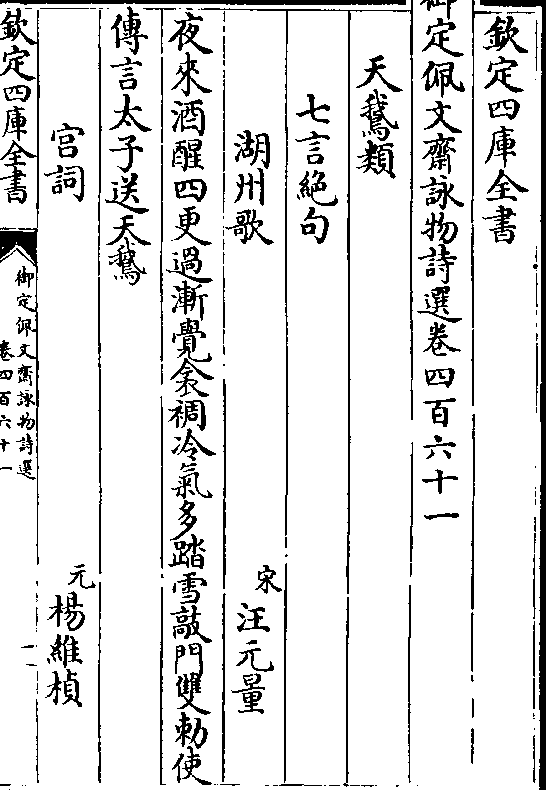 欽定四庫全書
御定佩文齋詠物詩選卷四百六十一
天鵝類
七言絶句
湖州歌 宋 汪元量
夜來酒醒四更過漸覺衾裯冷氣多踏雪敲門雙勅使
傳言太子送天鵝
宫詞 元 楊維楨
欽定四庫全書
御定佩文齋詠物詩選
卷四百六十一
一